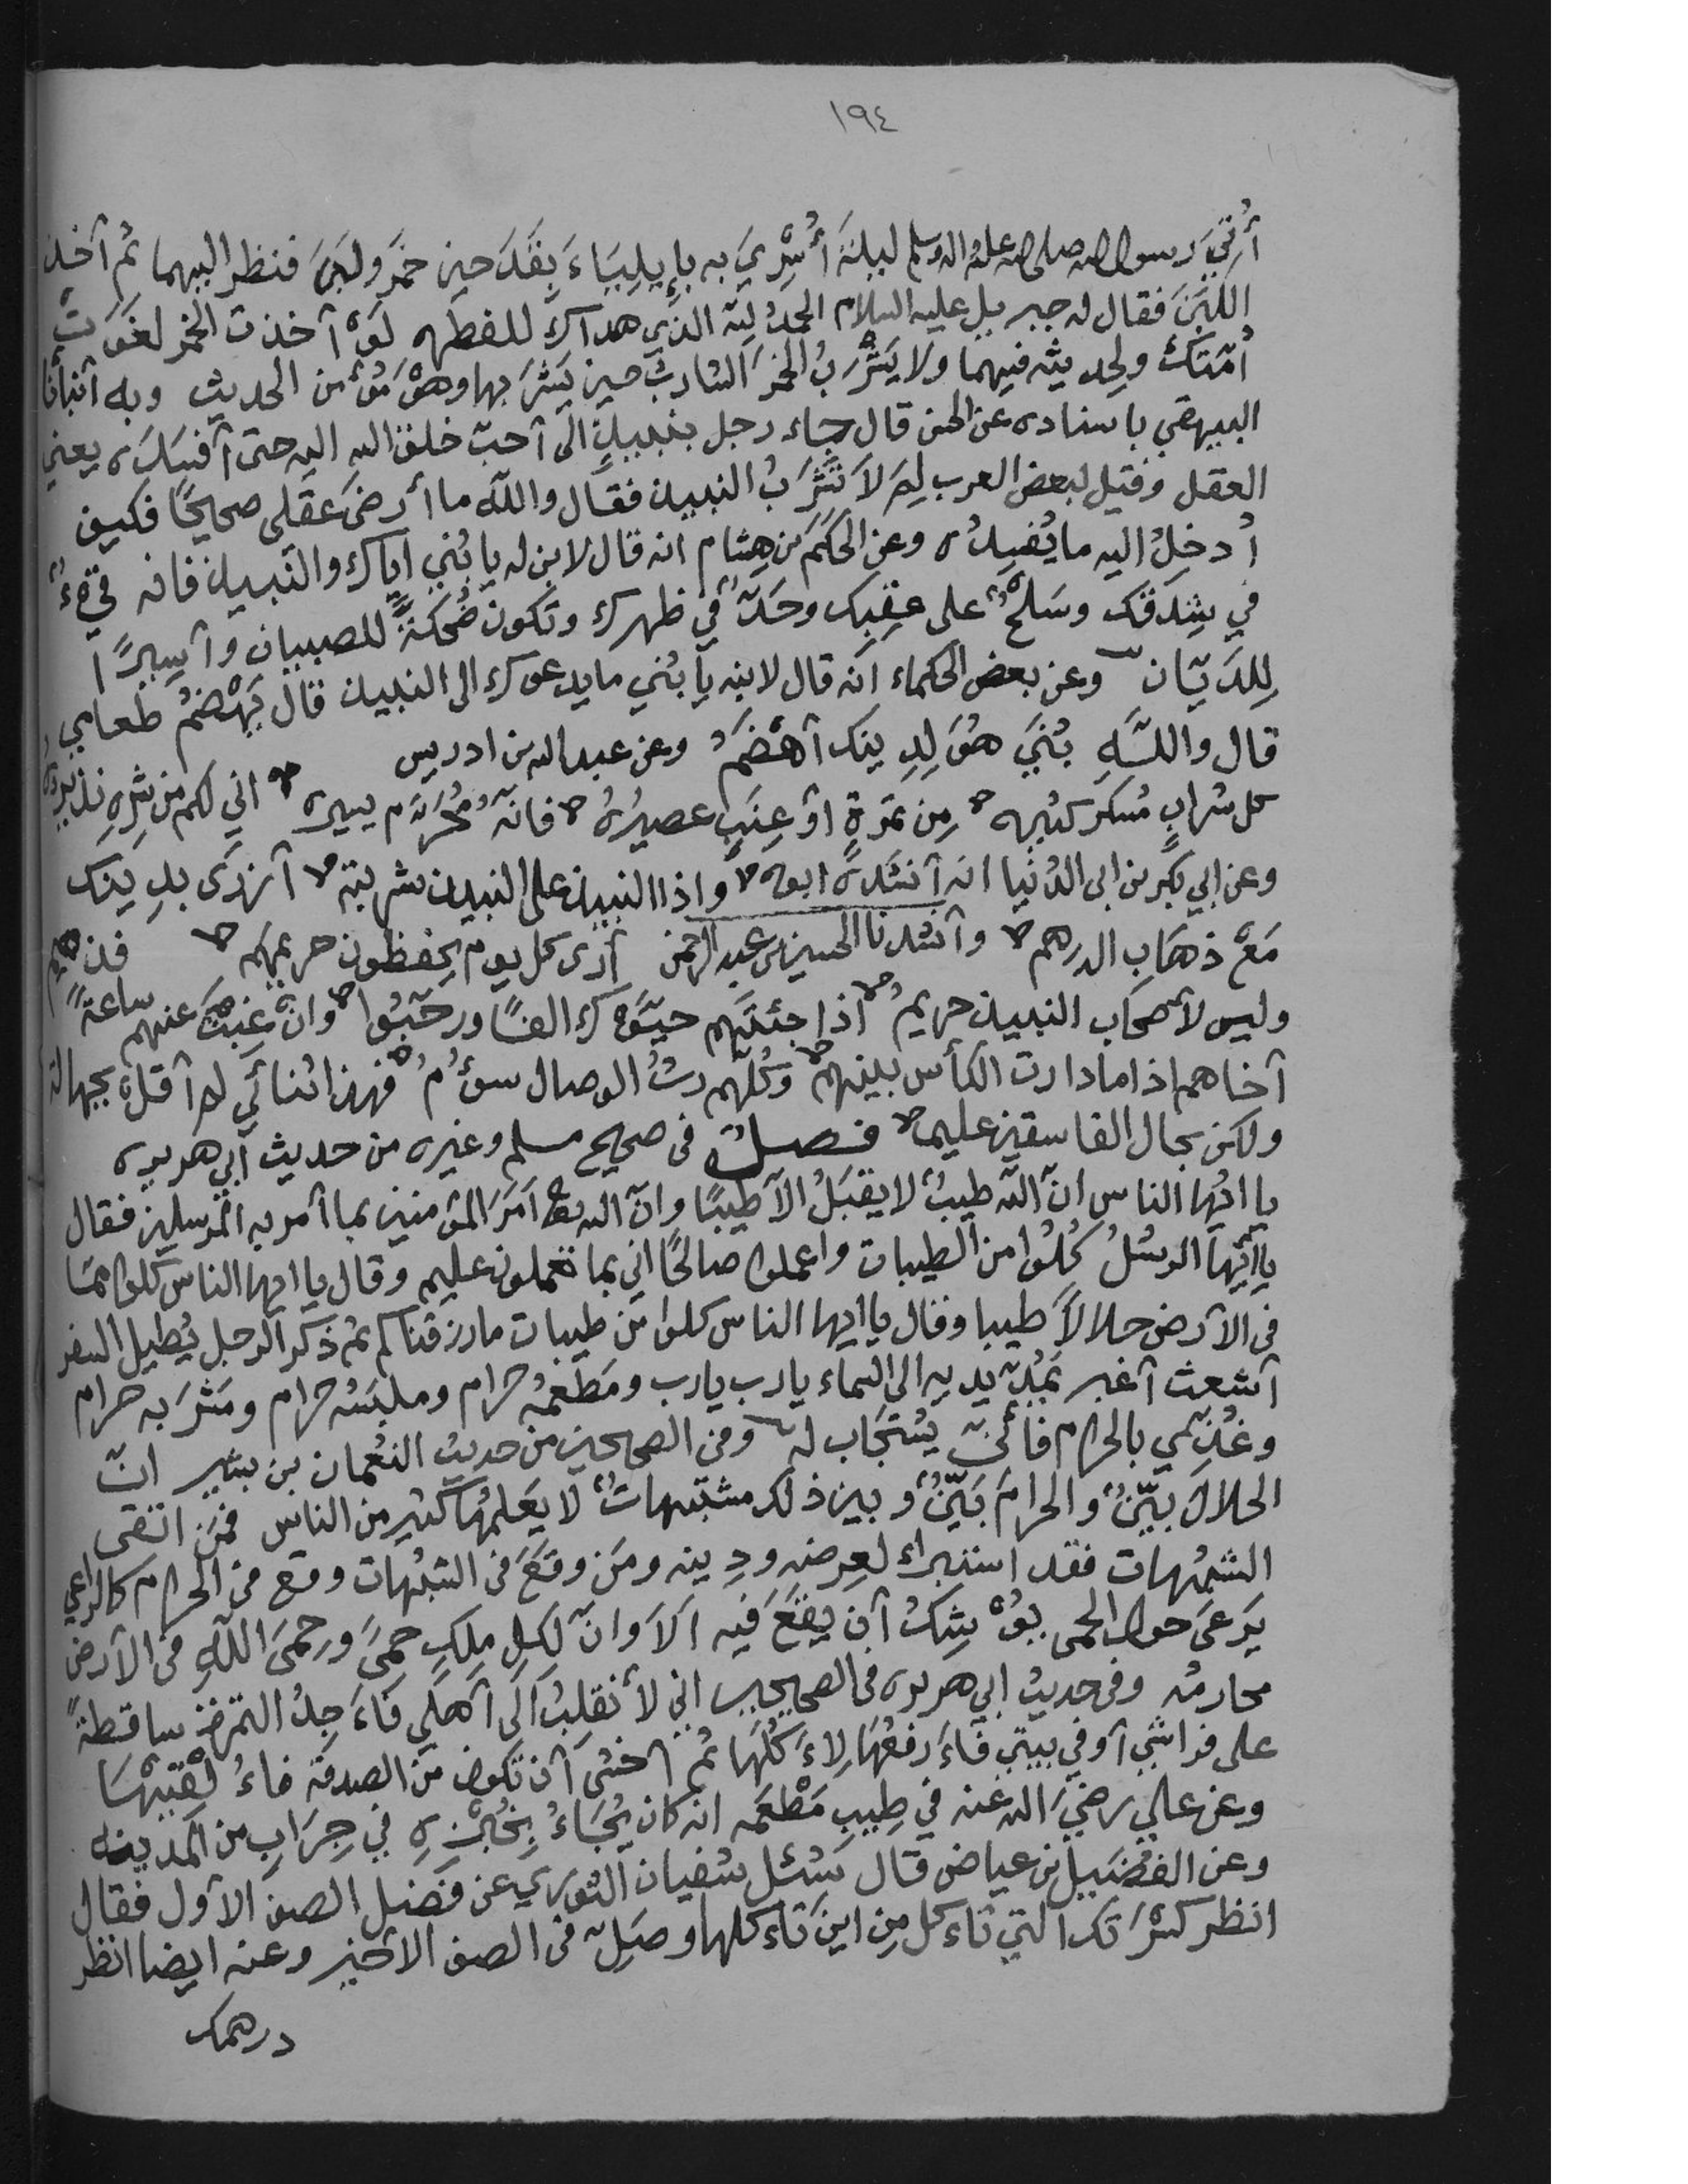 ١٩٤
أُتِيَ رسول الله صلى الله عليه واله وسلم ليلةَ أُسْرِيَ به بإيلِيَاءَ بقَدَحين خمَر ولبَن فنظر اليهما ثم آخذ
اللَبَنَ فقال له جبريل عليه السلام الحمدُ لله الذي هداك للفطره لَوْ آخذت الخمر لغَوَتْ
أمّتكَ ولحديثه فيهما ولا يَشْرَبُ الخمَر الشاربُ حين يَشْرَبها وهوَ مُؤْمن الحديث وبه آنبأنا
البيهقي باسناده عن الحسن قال جاء رجل بنبيذٍ الى آحبّ خلق الله اليه حتى آفسَدَه يعني
العقل وقيل لبعض العرب لِمَ لاَ تشْرَبُ النبيذ فقال واللّه ما أرضَى عَقْلى صحيحًا فكيف
أُدخِلُ اليه ما يُفسِدُه وعن الحَكَم بن هشام انه قال لابن له يا بُنَي اياك والنّبيذ فانه قيءٌ
في شِدقك وسَلحٌ على عقِبك وحَدٌّ في ظهرك وتكون ضُحكةً للصبيان وآسيرًا
لِلدَّيّان وعن بعض الحكماء انّه قال لابنه يا بُنَي ما يدعوك الى النبيذ قال يَهْضمُ طعامي
قال واللّهِ بُنَيَ هُوَ لِدِينك آهْضَمُ وعن عبدالله بن ادريس
كل شرابٍ مُسكرٍ كثيره من تمرةٍ اوْ عِنَبٍ عصيرُهُ فانّهُ مُحرَّم يسيره اني لكم من شرِّه نذيرُهُ
وعن ابي بَكر بن ابى الدُنيا انه آنشَدَهُ ابوه واذا النبيذ على النبيذ شربته آزرَى بدِينك
مَعْ ذهَاب الدرهم وآنشدنا الحسين بن عبد الرحمن أرى كل يوم يحفظون حريمهم
وليس لآصحَاب النبيذ حريمُ اذا جئتَهم حيَّوْك الفًا ورحّبُوا وانْ غِبْتَ عنهم ساعةً فذميم
آخاهم اذا ما دارت الكأس بينهم وكُلّهم رثُ الوصال سؤُمُ فهذا ثنائي لم آقلهُ بجهالة
ولكن بحال الفاسقين عليم فصلٌ فى صحيح مسلم وغيره من حديث آبي هريره
يا ايُها الناس انّ اللّه طيبٌ لا يقبَلُ الآ طيبًا وانّ الله تعالى امَرَ المؤمنين بما آمر به المرسلين فقال
يا آيّها الرسُلُ كُلُوا من الطيبات واعملوا صالحًا اني بما تعملون عليم وقال يا ايها الناس كلوا ممّا
فى الآرض حلالاً طيبا وقال يا ايها الناس كلوا من طيبات ما رزقناكم ثم ذكر الرجل يُطيل السفر
آشعث آغبر يَمُدّ يديه الى السماء يارب يارب ومَطعَمُه حرام وملبَسُه حرام ومَشْرَبه حرام
وغُذِّي بالحرام فأنّى يُستجَاب له وفى الصحيحين من حديثِ النعُمان بن بشير انّ
الحلالَ بيّنٌ والحرامَ بَيّنٌ وبين ذلك مشتبهاتٌ لا يَعلمُهَا كثير من الناس فمَن اتقى
الشبُهات فقد استبراء لعِرضه ودِينه ومَن وقَعَ فى الشبُهات وقع فى الحرام كالراعي
يَرعَى حول الحمى يوْشِكُ آن يقَعَ فيه آلاَ وانّ لكل مِلكٍ حِمىً وحِمىَ اللّهِ فى الآرض
محارمُه وفى حديث ابي هريره فى الصحيحين انّي لآنقلِبُ الَى آهلي فاءَجِدُ التمرَة ساقطةً
على فراشي آوفي بيتي فاءَرفعُهَا لاءَكُلَها ثم آخشَى آن تكون من الصدقة فاءُلْقيْهَا
وعن علي رضيَ الله عنه في طِيبِ مَطْعَمه انه كان يُجَاءُ بِخُبْزِهِ في جِرَابٍ من المدينه
وعن الفُضَيل بن عياض قال سُئل سُفيان الثوري عن فَضل الصف الآول فقال
انظر كسْرَتك التي تاءكل مِن اينَ تاءكلها وصَلِّ فى الصف الآخير وعنه ايضا انظر
درهمك